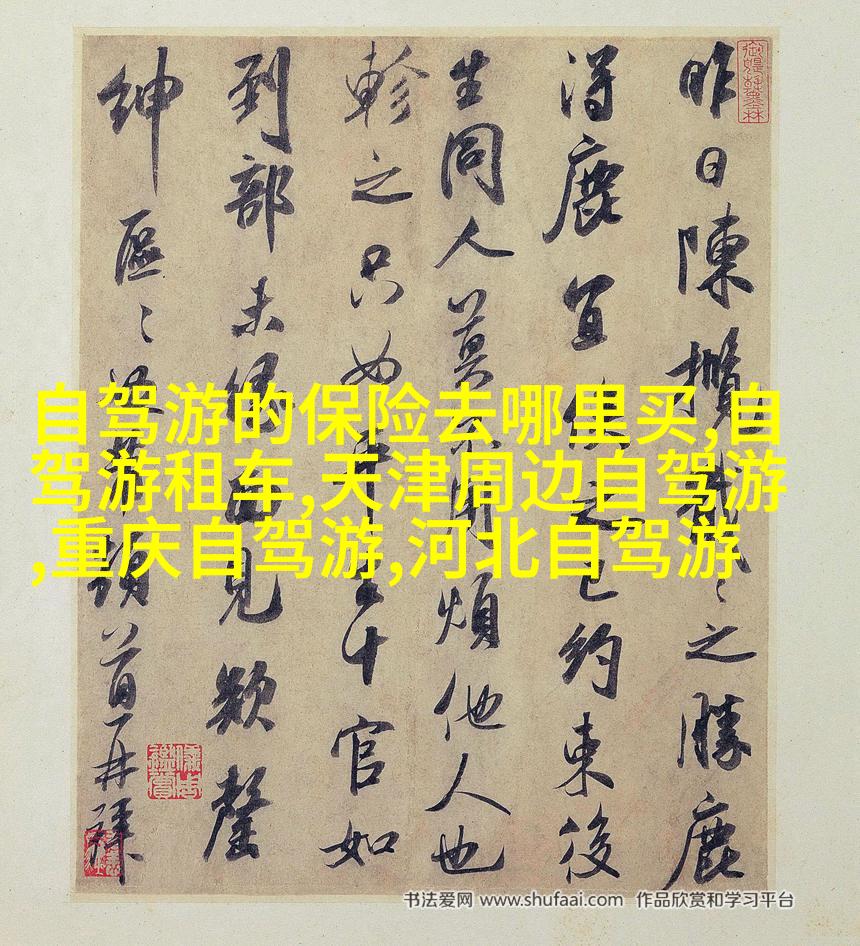 昨日陳攬戢之勝鹿
得鹿宜
已約束後
生同人莫
用煩他人也
軫之只如
十官如
到部未緣面見欽罄
紳區〻
頓首再拜
自驾游的保险去哪里买,自
驾游租车,天津周边自驾游
,重庆自驾游,河北自驾游
书法爱网 www.shufaai.com 作品欣赏和学习平台